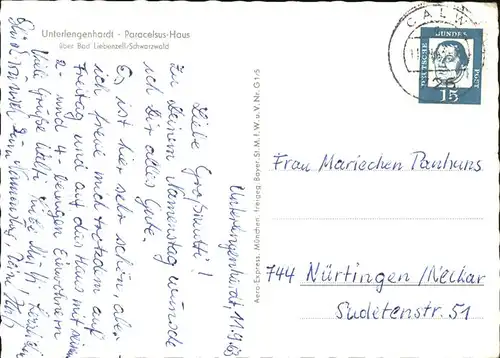 Unterlengenhardt - Paracelsus-Haus
über Bad Liebenzell/Schwarzwald
CALW
DEUTSCHE BUNDES POST
15
Unterlengenhardt, 11.9.63
Liebe Großmutti!
Zu Deinem Namenstag wünsche
ich Dir alles Gute.
Es ist hier sehr schön, aber
ich freue mich trotzdem auf
Freitag und auf das Haus mit seinen
2- und 4-beinigen Einwohnern
Viele Grüße
Aero-Express, München, freigeg. Bayer. St. M. f. W. u. V. Nr. G 1/5
Frau Mariechen Panhuns
744 Nürtingen/Neckar
Sudetenstr. 51